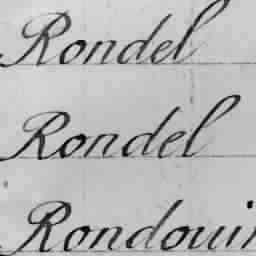 Rondel
Rondel
Rondouin